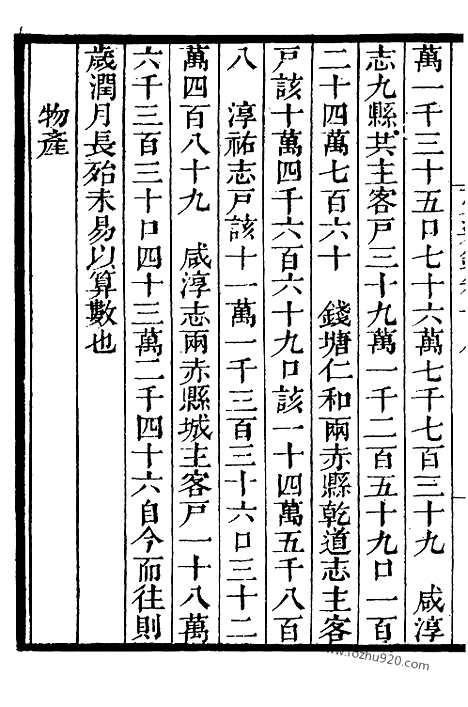 萬一千三十五口七十六萬七千七百三十九　咸淳
志九縣共主客戶三十九萬一千二百五十九口一百
二十四萬七百六十　錢塘仁和兩赤縣乾道志主客
戸該十萬四千六百六十九口該一十四萬五千八百
八　淳祐志戸該十一萬一千三百三十六口三十二
萬四百八十九　咸淳志兩赤縣城主客戸一十八萬
六千三百三十口四十三萬二千四十六自今而往則
歲潤月長殆未易以算數也
物產
www.fozhu920.com